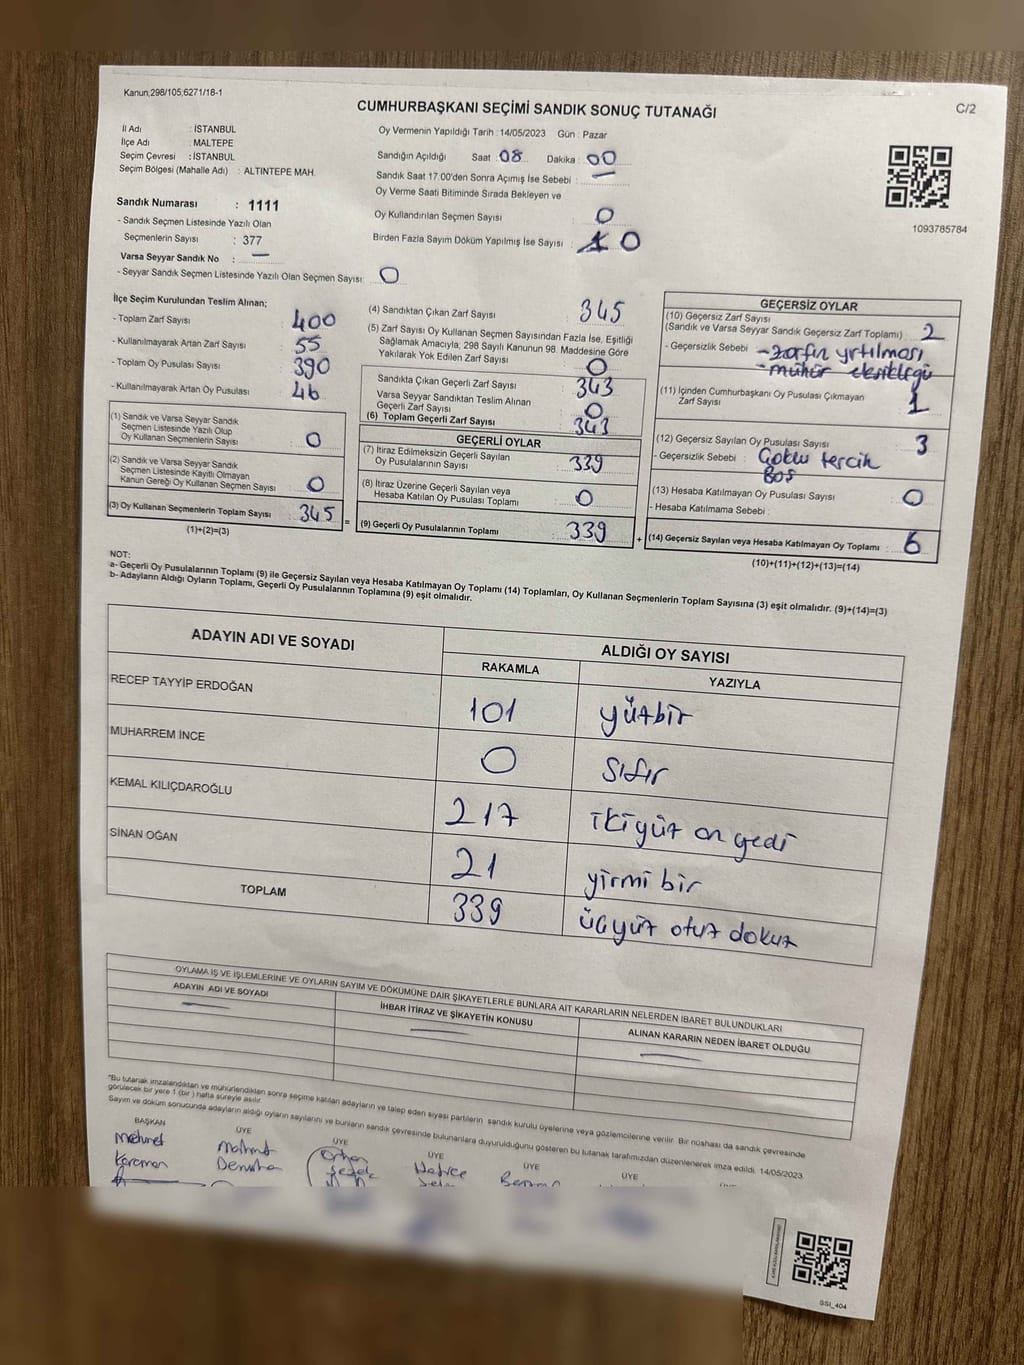 Kanun,298/105,6271/18-1
CUMHURBAŞKANI SEÇİMİ SANDIK SONUÇ TUTANAĞI
C/2
İl Adı : İSTANBUL
İlçe Adı : MALTEPE
Seçim Çevresi : İSTANBUL
Seçim Bölgesi (Mahalle Adı) : ALTINTEPE MAH.
Sandık Numarası : 1111
- Sandık Seçmen Listesinde Yazılı Olan
Seçmenlerin Sayısı : 377
Varsa Seyyar Sandık No : —
- Seyyar Sandık Seçmen Listesinde Yazılı Olan Seçmen Sayısı: 0
Oy Vermenin Yapıldığı Tarih : 14/05/2023 Gün : Pazar
Sandığın Açıldığı Saat : 08 Dakika : 00
Sandık Saat 17.00'den Sonra Açımış İse Sebebi : —
Oy Verme Saati Bitiminde Sırada Bekleyen ve
Oy Kullandırılan Seçmen Sayısı : 0
Birden Fazla Sayım Döküm Yapılmış İse Sayısı : 0
1093785784
İlçe Seçim Kurulundan Teslim Alınan;
- Toplam Zarf Sayısı : 400
- Kullanılmayarak Artan Zarf Sayısı : 55
- Toplam Oy Pusulası Sayısı : 390
- Kullanılmayarak Artan Oy Pusulası : 46
(1) Sandık ve Varsa Seyyar Sandık
Seçmen Listesinde Yazılı Olup
Oy Kullanan Seçmenlerin Sayısı : 0
(2) Sandık ve Varsa Seyyar Sandık
Seçmen Listesinde Kayıtlı Olmayan
Kanun Gereği Oy Kullanan Seçmen Sayısı : 0
(3) Oy Kullanan Seçmenlerin Toplam Sayısı : 345
(1)+(2)=(3)
=
(4) Sandıktan Çıkan Zarf Sayısı : 345
(5) Zarf Sayısı Oy Kullanan Seçmen Sayısından Fazla İse, Eşitliği
Sağlamak Amacıyla, 298 Sayılı Kanunun 98. Maddesine Göre
Yakılarak Yok Edilen Zarf Sayısı : 0
Sandıkta Çıkan Geçerli Zarf Sayısı : 343
Varsa Seyyar Sandıktan Teslim Alınan
Geçerli Zarf Sayısı : 0
(6) Toplam Geçerli Zarf Sayısı : 343
GEÇERLİ OYLAR
(7) İtiraz Edilmeksizin Geçerli Sayılan
Oy Pusulalarının Sayısı : 339
(8) İtiraz Üzerine Geçerli Sayılan veya
Hesaba Katılan Oy Pusulası Toplamı : 0
(9) Geçerli Oy Pusulalarının Toplamı : 339
+
GEÇERSİZ OYLAR
(10) Geçersiz Zarf Sayısı
(Sandık ve Varsa Seyyar Sandık Geçersiz Zarf Toplamı) : 2
- Geçersizlik Sebebi : -zarfın yırtılması
-mühür eksikliği
(11) İçinden Cumhurbaşkanı Oy Pusulası Çıkmayan
Zarf Sayısı : 1
(12) Geçersiz Sayılan Oy Pusulası Sayısı : 3
- Geçersizlik Sebebi : Çoklu tercih
Boş
(13) Hesaba Katılmayan Oy Pusulası Sayısı : 0
- Hesaba Katılmama Sebebi :
(14) Geçersiz Sayılan veya Hesaba Katılmayan Oy Toplamı : 6
(10)+(11)+(12)+(13)=(14)
NOT:
a- Geçerli Oy Pusulalarının Toplamı (9) ile Geçersiz Sayılan veya Hesaba Katılmayan Oy Toplamı (14) Toplamları, Oy Kullanan Seçmenlerin Toplam Sayısına (3) eşit olmalıdır. (9)+(14)=(3)
b- Adayların Aldığı Oyların Toplamı, Geçerli Oy Pusulalarının Toplamına (9) eşit olmalıdır.
ADAYIN ADI VE SOYADI
ALDIĞI OY SAYISI
RAKAMLA YAZIYLA
RECEP TAYYİP ERDOĞAN 101 yüzbir
MUHARREM İNCE 0 sıfır
KEMAL KILIÇDAROĞLU 217 ikiyüz on yedi
SİNAN OĞAN 21 yirmi bir
TOPLAM 339 üçyüz otuz dokuz
OYLAMA İŞ VE İŞLEMLERİNE VE OYLARIN SAYIM VE DÖKÜMÜNE DAİR ŞİKAYETLERLE BUNLARA AİT KARARLARIN NELERDEN İBARET BULUNDUKLARI
ADAYIN ADI VE SOYADI
İHBAR İTİRAZ VE ŞİKAYETİN KONUSU
ALINAN KARARIN NEDEN İBARET OLDUĞU
— — —
*Bu tutanak imzalandıktan ve mühürlendikten sonra seçime katılan adayların ve talep eden siyasi partilerin sandık kurulu üyelerine veya gözlemcilerine verilir. Bir nüshası da sandık çevresinde
görülecek bir yere 1 (bir) hafta süreyle asılır.
Sayım ve döküm sonucunda adayların aldığı oyların sayılarını ve bunların sandık çevresinde bulunanlara duyurulduğunu gösteren bu tutanak tarafımızdan düzenlenerek imza edildi. 14/05/2023
BAŞKAN ÜYE ÜYE ÜYE ÜYE ÜYE
Mehmet Mahmut Orhan Hatice
Karaman
SSI_404